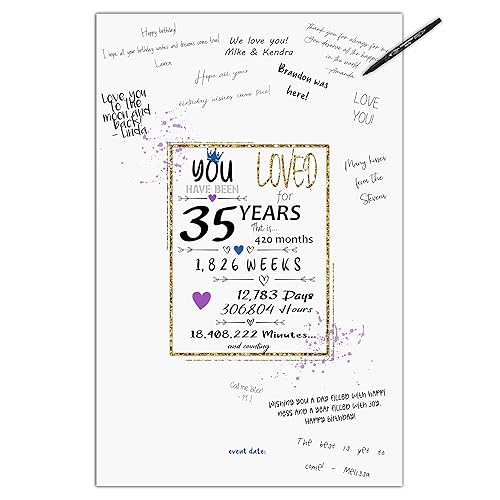 Happy birthday!
I hope all your birthday wishes and dreams come true!
Lauren
We love you!
Mike & Kendra
Thank you for always for
You deserve all the happ
in the world.
-Amanda
Hope all your
birthday wishes come true!
Brandon was
here!
LOVE
YOU!
Love you
to the
moon and
back!
-Linda
Many kisses
from the
Stevens
YOU
HAVE BEEN
LOVED
for
35 YEARS
That is...
420 months
1,826 WEEKS
12,783 Days
306,804 Hours
18,408,222 Minutes...
and counting
Call me later!
- M.J
Wishing you a day filled with happy
ness and a year filled with joy.
Happy birthday!
The best is yet to
come! - Melissa
event date: